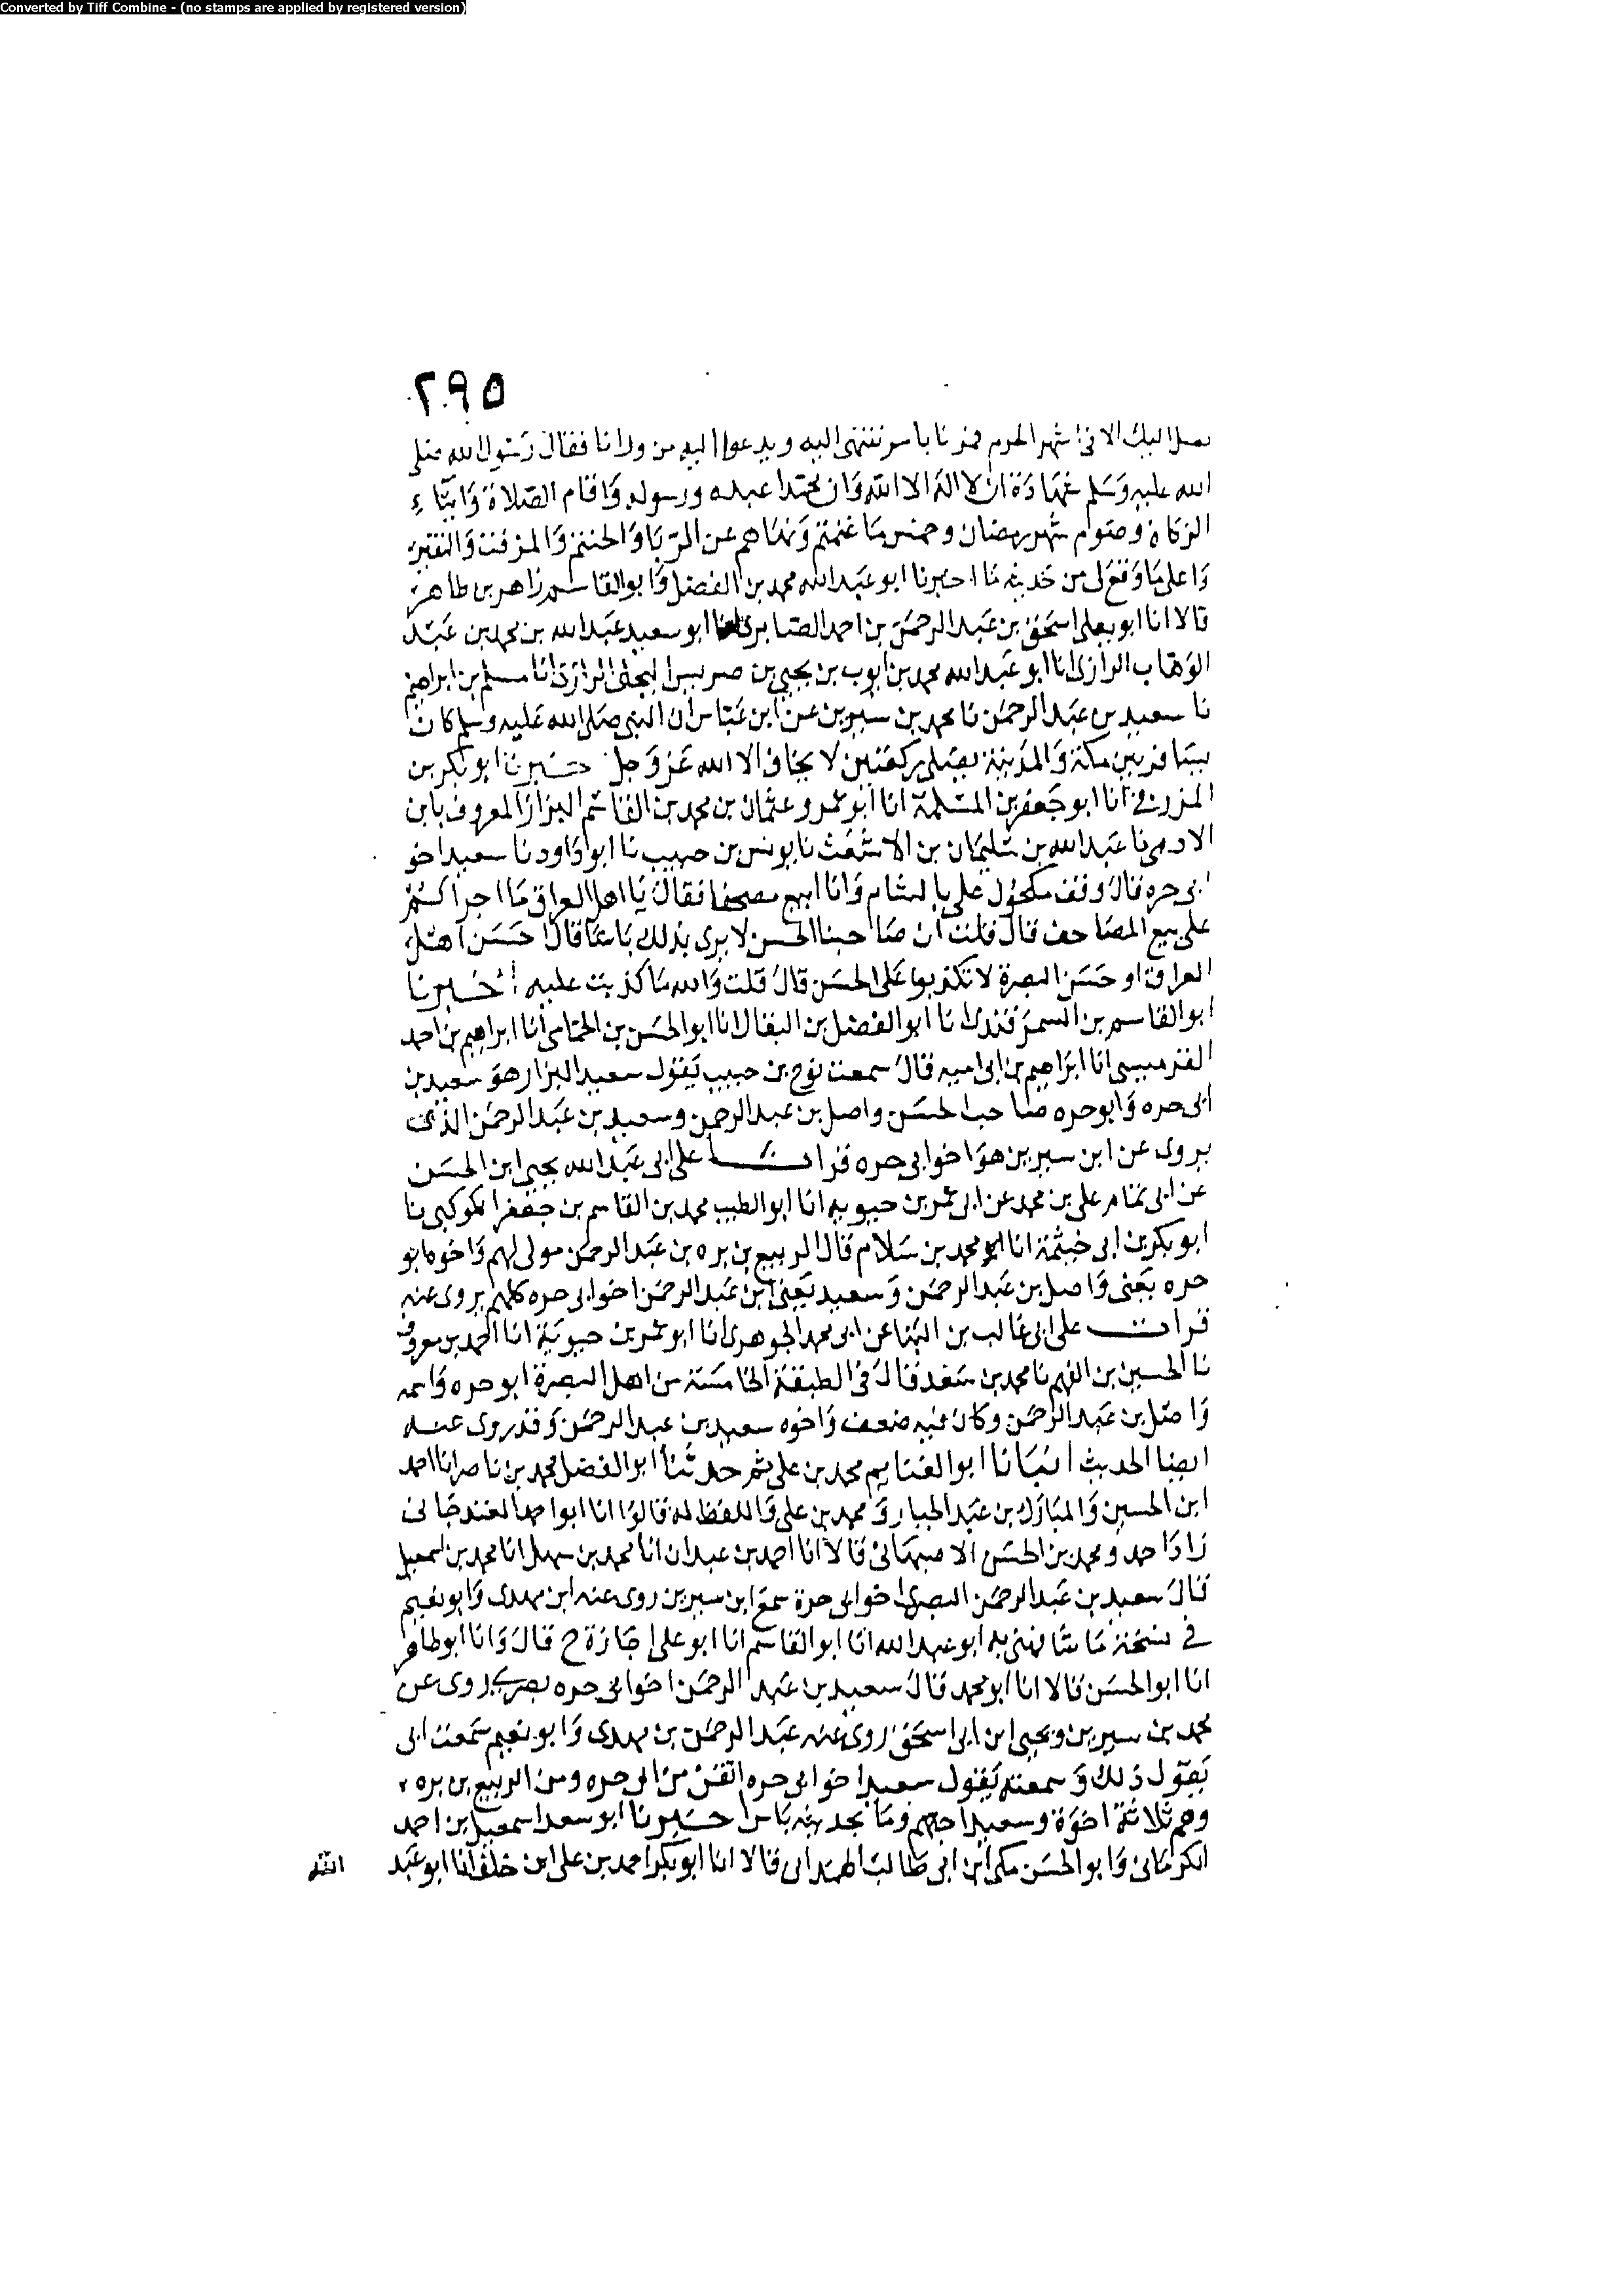 Converted by Tiff Combine - (no stamps are applied by registered version)
٢٩٥
نصل اليك الا في اشهر الحرم فمرنا بامر ننتهى اليه وندعوا اليه من ورانا فقال رسول الله صلى
الله عليه وسلم شهادة ان لا اله الا الله وان محمدا عبده ورسوله واقام الصلاة وايتاء
الزكاة وصوم شهر رمضان وخمس ما غنمتم ونهاهم عن الدبا والحنتم والمزفت والنقير
واعلى ما وقع لى من حديثه ما اخبرنا ابو عبد الله محمد بن الفضل وابو القاسم زاهر بن طاهر
قالا انا ابو يعلى اسحق بن عبد الرحمن بن احمد الصابونى انا ابو سعيد عبد الله بن محمد بن عبد
الوهاب الرازى انا ابو عبد الله محمد بن ايوب بن يحيى بن ضريس البجلى الرازى انا مسلم بن ابراهيم
نا سعيد بن عبد الرحمن نا محمد بن سيرين عن ابن عباس ان النبى صلى الله عليه وسلم كان
يسافر بين مكة والمدينة يصلى ركعتين لا يخاف الا الله عز وجل اخبرنا ابو بكر بن
المزرفي انا ابو جعفر بن المسلمة انا ابو عمرو عثمان بن محمد بن القاسم البزاز المعروف بابن
الادمى نا عبد الله بن سليمان بن الاشعث نا يونس بن حبيب نا ابو داود نا سعيد اخو
ابى حره قال وقف مكحول على بالشام وانا ابيع مصحفا فقال يا اهل العراق ما اجراكم
على بيع المصاحف قال قلت ان صاحبنا الحسن لا يرى بذلك باسا قال حسن اهل
العراق او حسن البصرة لا تكذبوا على الحسن قال قلت والله ما كذبت عليه اخبرنا
ابو القاسم بن السمرقندى انا ابو الفضل بن البقال انا ابو الحسن بن الحمامى انا ابراهيم بن احمد
القرميسى انا ابراهيم بن ابى اميه قال سمعت نوح بن حبيب يقول سعيد البزار هو سعيد بن
ابى حره وابو حره صاحب الحسن واصل بن عبد الرحمن وسعيد بن عبد الرحمن الذى
يروى عن ابن سيرين هو اخو ابى حره قرات على ابى عبد الله يحيى ابن الحسن
عن ابى تمام على بن محمد عن ابى عمر بن حيويه انا ابو الطيب محمد بن القاسم بن جعفر الكوكبى نا
ابو بكر بن ابى خيثمة انا محمد بن سلام قال الربيع بن بره بن عبد الرحمن مولى لهم واخوه ابو
حره يعنى واصل بن عبد الرحمن وسعيد يعنى ابن عبد الرحمن اخو ابى حره كلهم يروى عنه
قرات على ابى غالب بن البنا عن ابى محمد الجوهرى انا ابو عمر بن حيوية انا احمد بن معروف
نا الحسين بن الفهم نا محمد بن سعد قال في الطبقة الخامسة من اهل البصرة ابو حره واسمه
واصل بن عبد الرحمن وكان فيه ضعف واخوه سعيد بن عبد الرحمن وقد روى عنه
ايضا الحديث انبانا ابو الغنايم محمد بن على ثم حدثنا ابو الفضل محمد بن ناصر انا احمد
ابن الحسين والمبارك بن عبد الجبار ومحمد بن على واللفظ له قالوا انا ابو احمد الغندجانى
زاد احمد ومحمد بن الحسن الاصبهانى قالا انا احمد بن عبدان انا محمد بن سهل انا محمد بن اسمعيل
قال سعيد بن عبد الرحمن البصرى اخو ابى حرة سمع ابن سيرين روى عنه ابن مهدى وابو نعيم
في نسخة ما شافهنى به ابو عبد الله انا ابو القاسم انا ابو على اجازة ح قال وانا ابو طاهر
انا ابو الحسن قالا انا ابو محمد قال سعيد بن عبد الرحمن اخو ابى حره بصرى روى عن
محمد بن سيرين ويحيى ابن ابى اسحق روى عنه عبد الرحمن بن مهدى وابو نعيم سمعت ابى
يقول ذلك وسمعته يقول سعيد اخو ابى حره اتقن من ابى حره ومن الربيع بن بره
وهم ثلاثة اخوة وسعيد احبهم وما بحديثه باس اخبرنا ابو سعد اسمعيل بن احمد
الكرمانى وابو الحسن مكى ابن ابى طالب الهمدانى قالا انا ابو بكر احمد بن على ابن خلف انا ابو عبد
الله